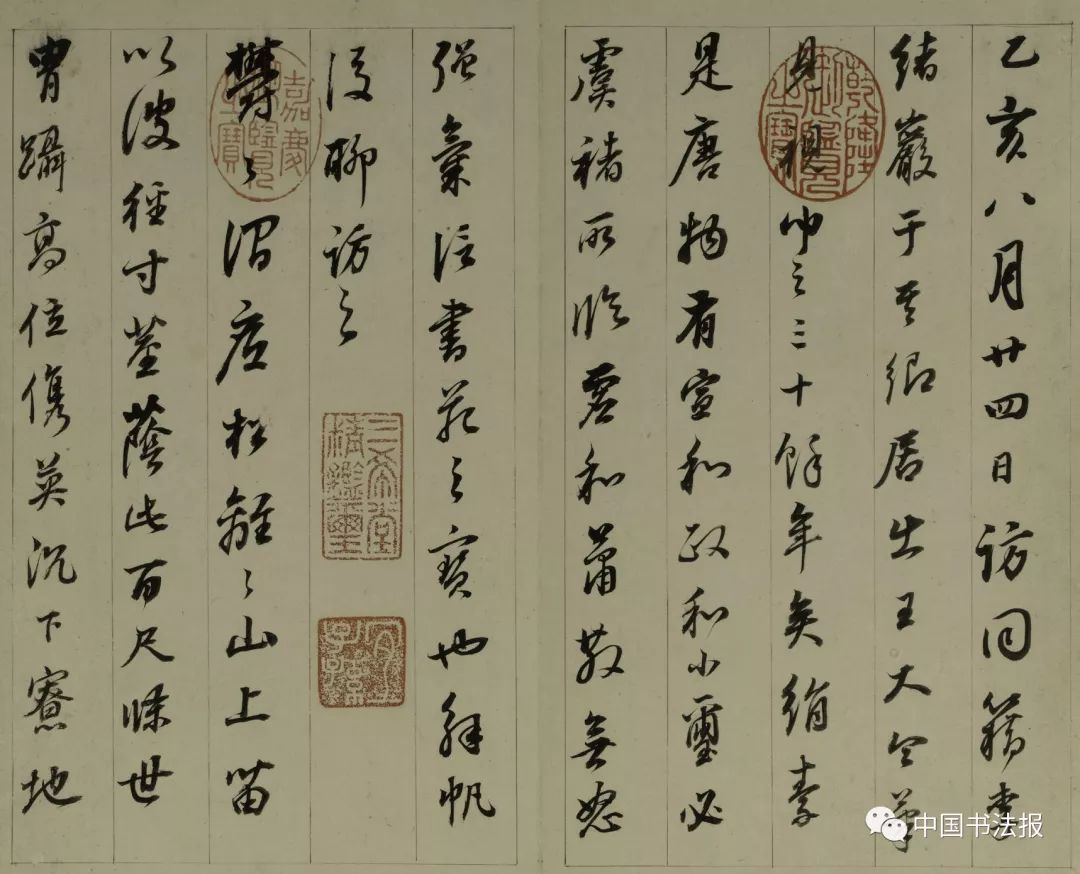 乙亥八月廿四日訪同籍李
緒巖于其鄉居出王大令第
之三十餘年矣絹素
是唐物有宣和政和小璽必
虞褚所臨虛和蕭散無怒
強氣法書苑之寶也解帆
後聊訪之
鬱〻澗底松離〻山上苗
以彼徑寸莖蔭此百尺條世
胄躡高位儁英沉下寮地
乾隆御覽之寶
嘉慶御覽之寶
三希堂精鑑璽
宜子孫
中国书法报